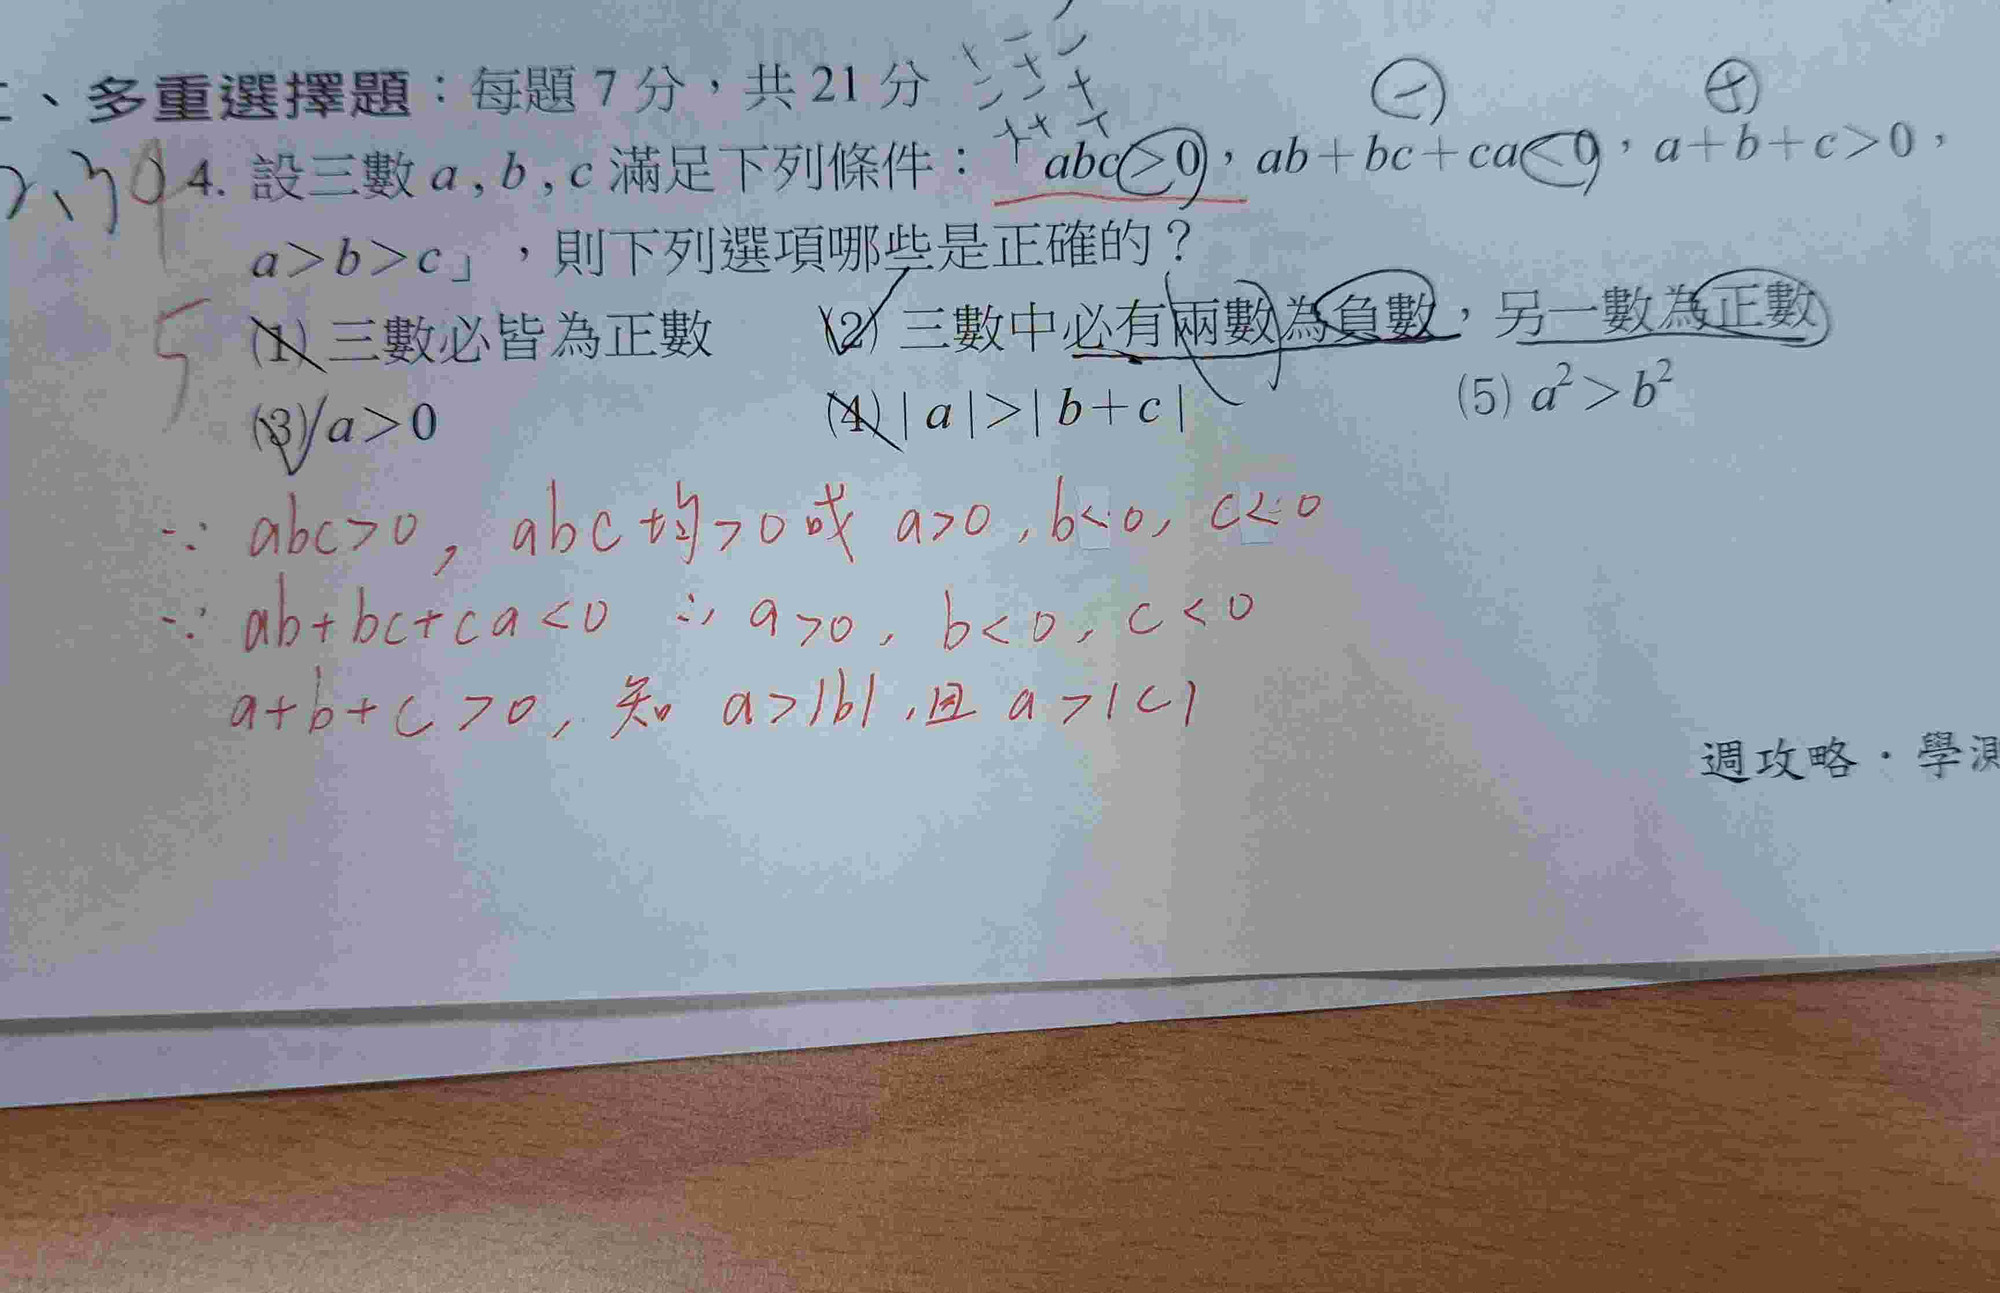 、多重選擇題：每題 7 分，共 21 分
4. 設三數 a , b , c 滿足下列條件：「abc>0，ab+bc+ca<0，a+b+c>0，
a>b>c」，則下列選項哪些是正確的？
(1) 三數必皆為正數 (2) 三數中必有兩數為負數，另一數為正數
(3) a>0 (4) |a|>|b+c| (5) a²>b²
∵ abc>0, abc均>0 或 a>0, b<0, c<0
∵ ab+bc+ca<0 ∴ a>0, b<0, c<0
a+b+c>0, 知 a>|b|,且 a>|c|
週攻略．學測